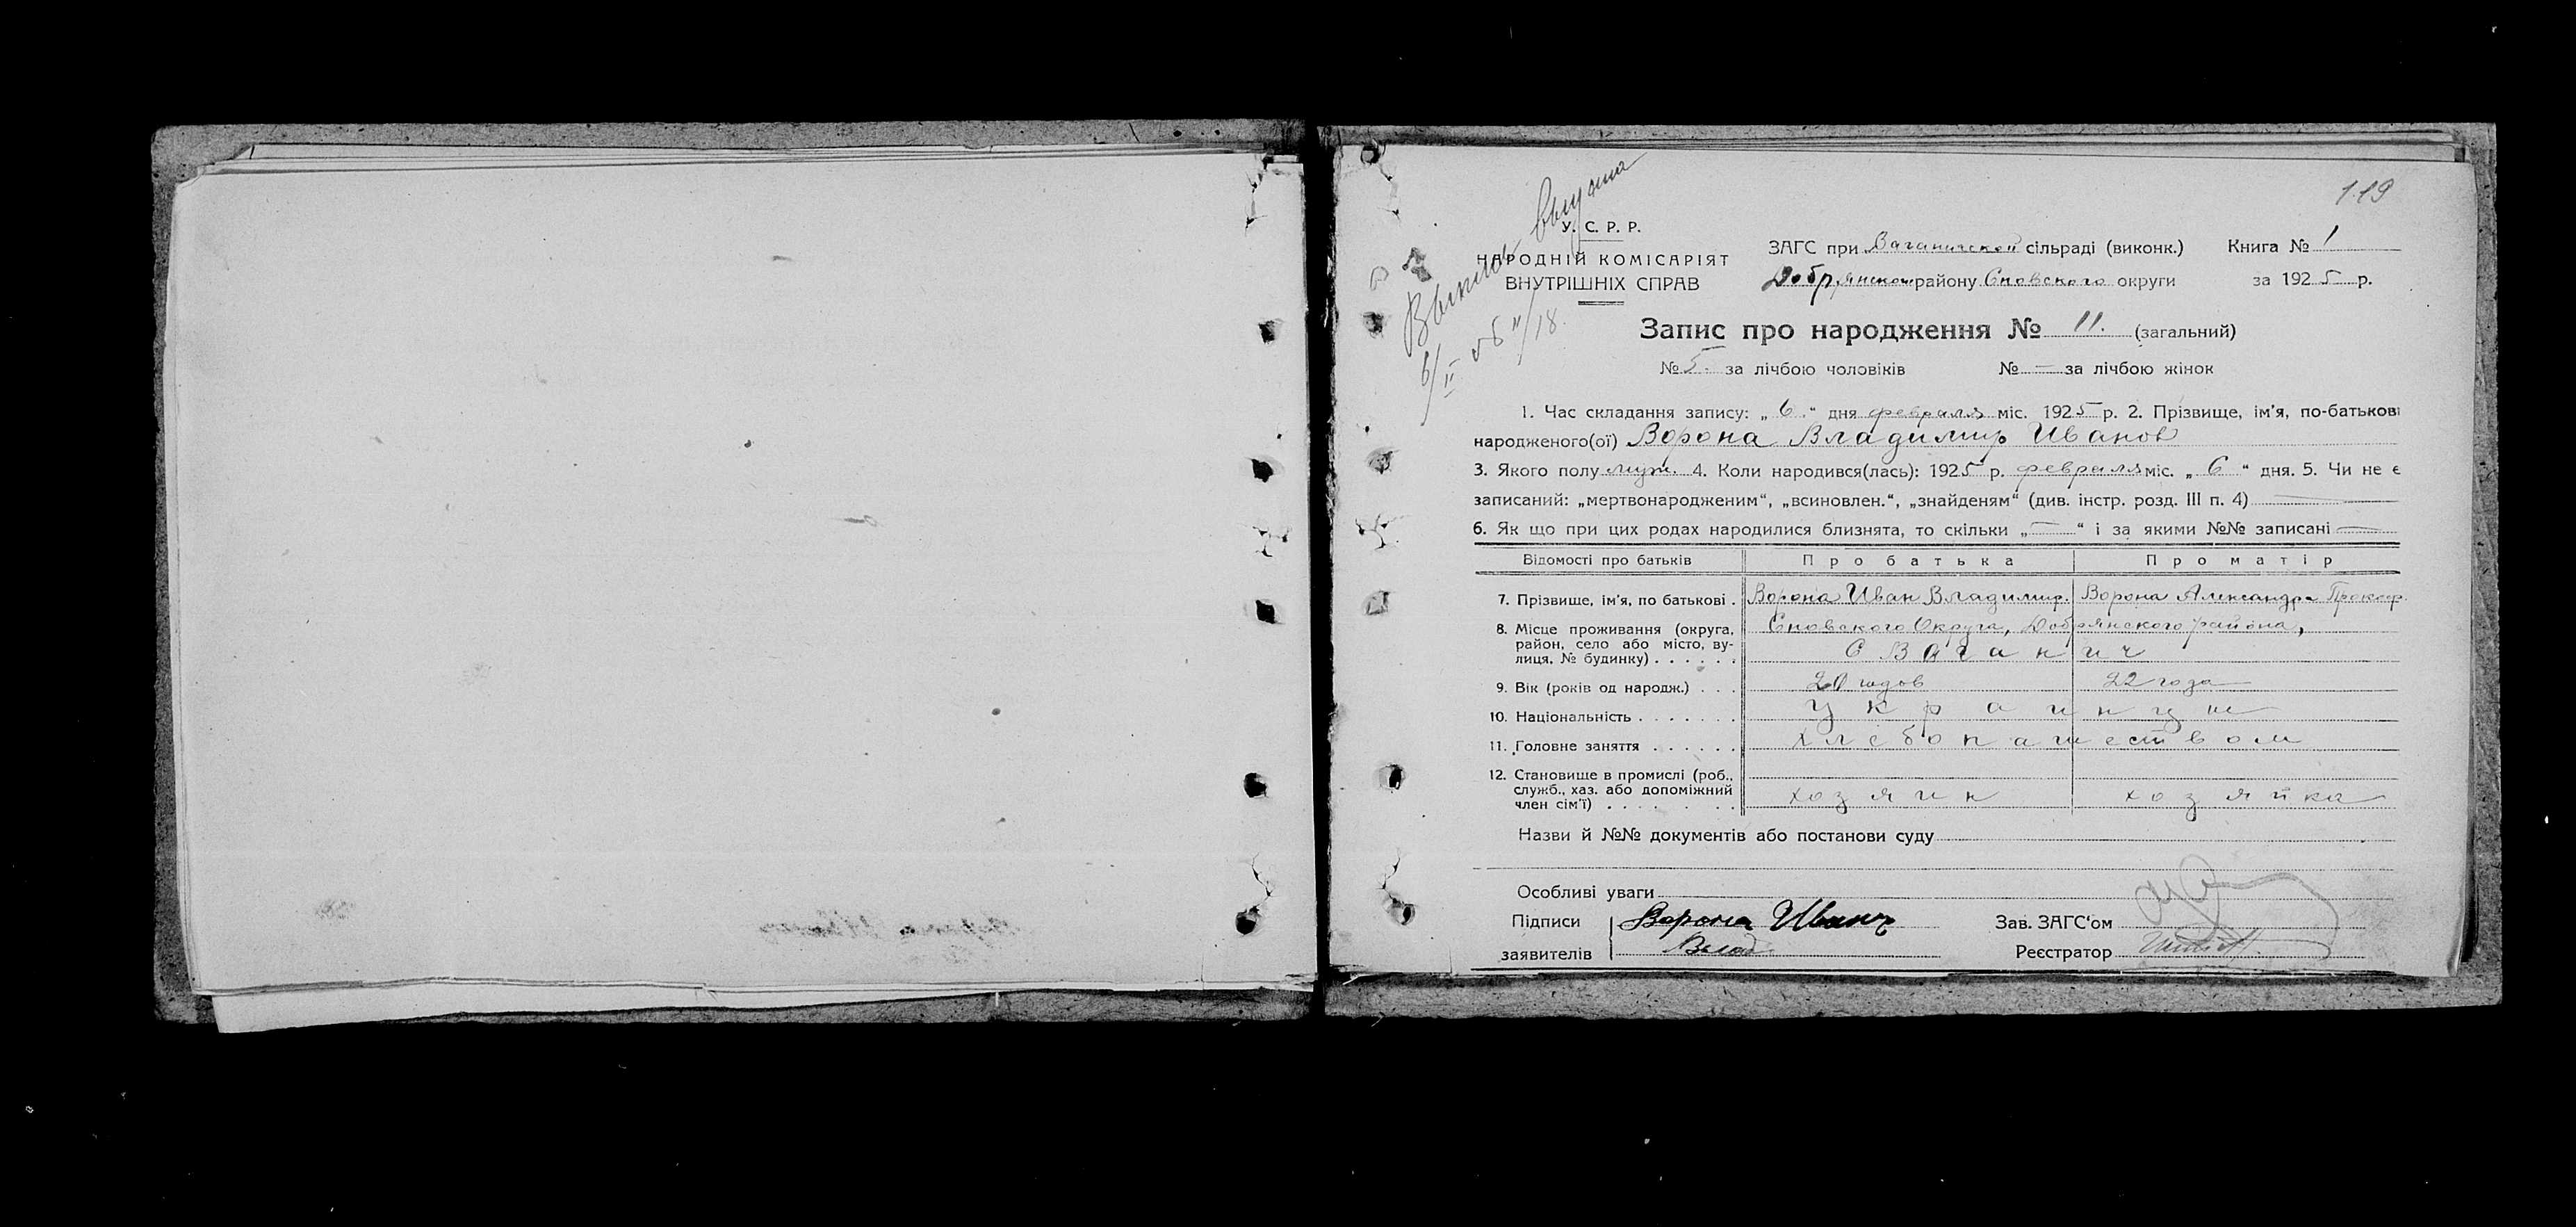 119
У. С. Р. Р.
НАРОДНІЙ КОМІСАРІЯТ
ВНУТРІШНІХ СПРАВ
ЗАГС при Ваганичской сільраді (виконк.) Книга № 1
Добрянском району Сновского округи за 1925 р.
Запис про народження № 11. (загальний)
№ 5. за лічбою чоловіків № — за лічбою жінок
1. Час складання запису: „ 6. “ дня февраля міс. 1925 р. 2. Прізвище, ім'я, по-батькові
народженого(ої) Ворона Владимир Иванов
3. Якого полу муж. 4. Коли народився(лась): 1925 р. февраля міс. „ 6 “ дня. 5. Чи не є
записаний: „мертвонародженим“, „всиновлен.“, „знайденям“ (див. інстр. розд. III п. 4) —
6. Як що при цих родах народилися близнята, то скільки „—“ і за якими №№ записані —
Відомості про батьків Про батька Про матір
7. Прізвище, ім'я, по батькові . Ворона Иван Владимир. Ворона Александра Прокоф.
8. Місце проживання (округа, Сновского Округа, Добрянского района,
район, село або місто, ву-
лиця, № будинку) . . . . . . С Ваганич
9. Вік (років од народж.) . . . 20 годов 22 года
10. Національність . . . . . . . украинцы
11. Головне заняття . . . . . . хлебопашеством
12. Становище в промислі (роб.,
служб., хаз. або допоміжний
член сім'ї) . . . . . . . хозяин хозяйка
Назви й №№ документів або постанови суду
Особливі уваги
Підписи Ворона Иван Зав. ЗАГС'ом
заявителів Влад. Реєстратор